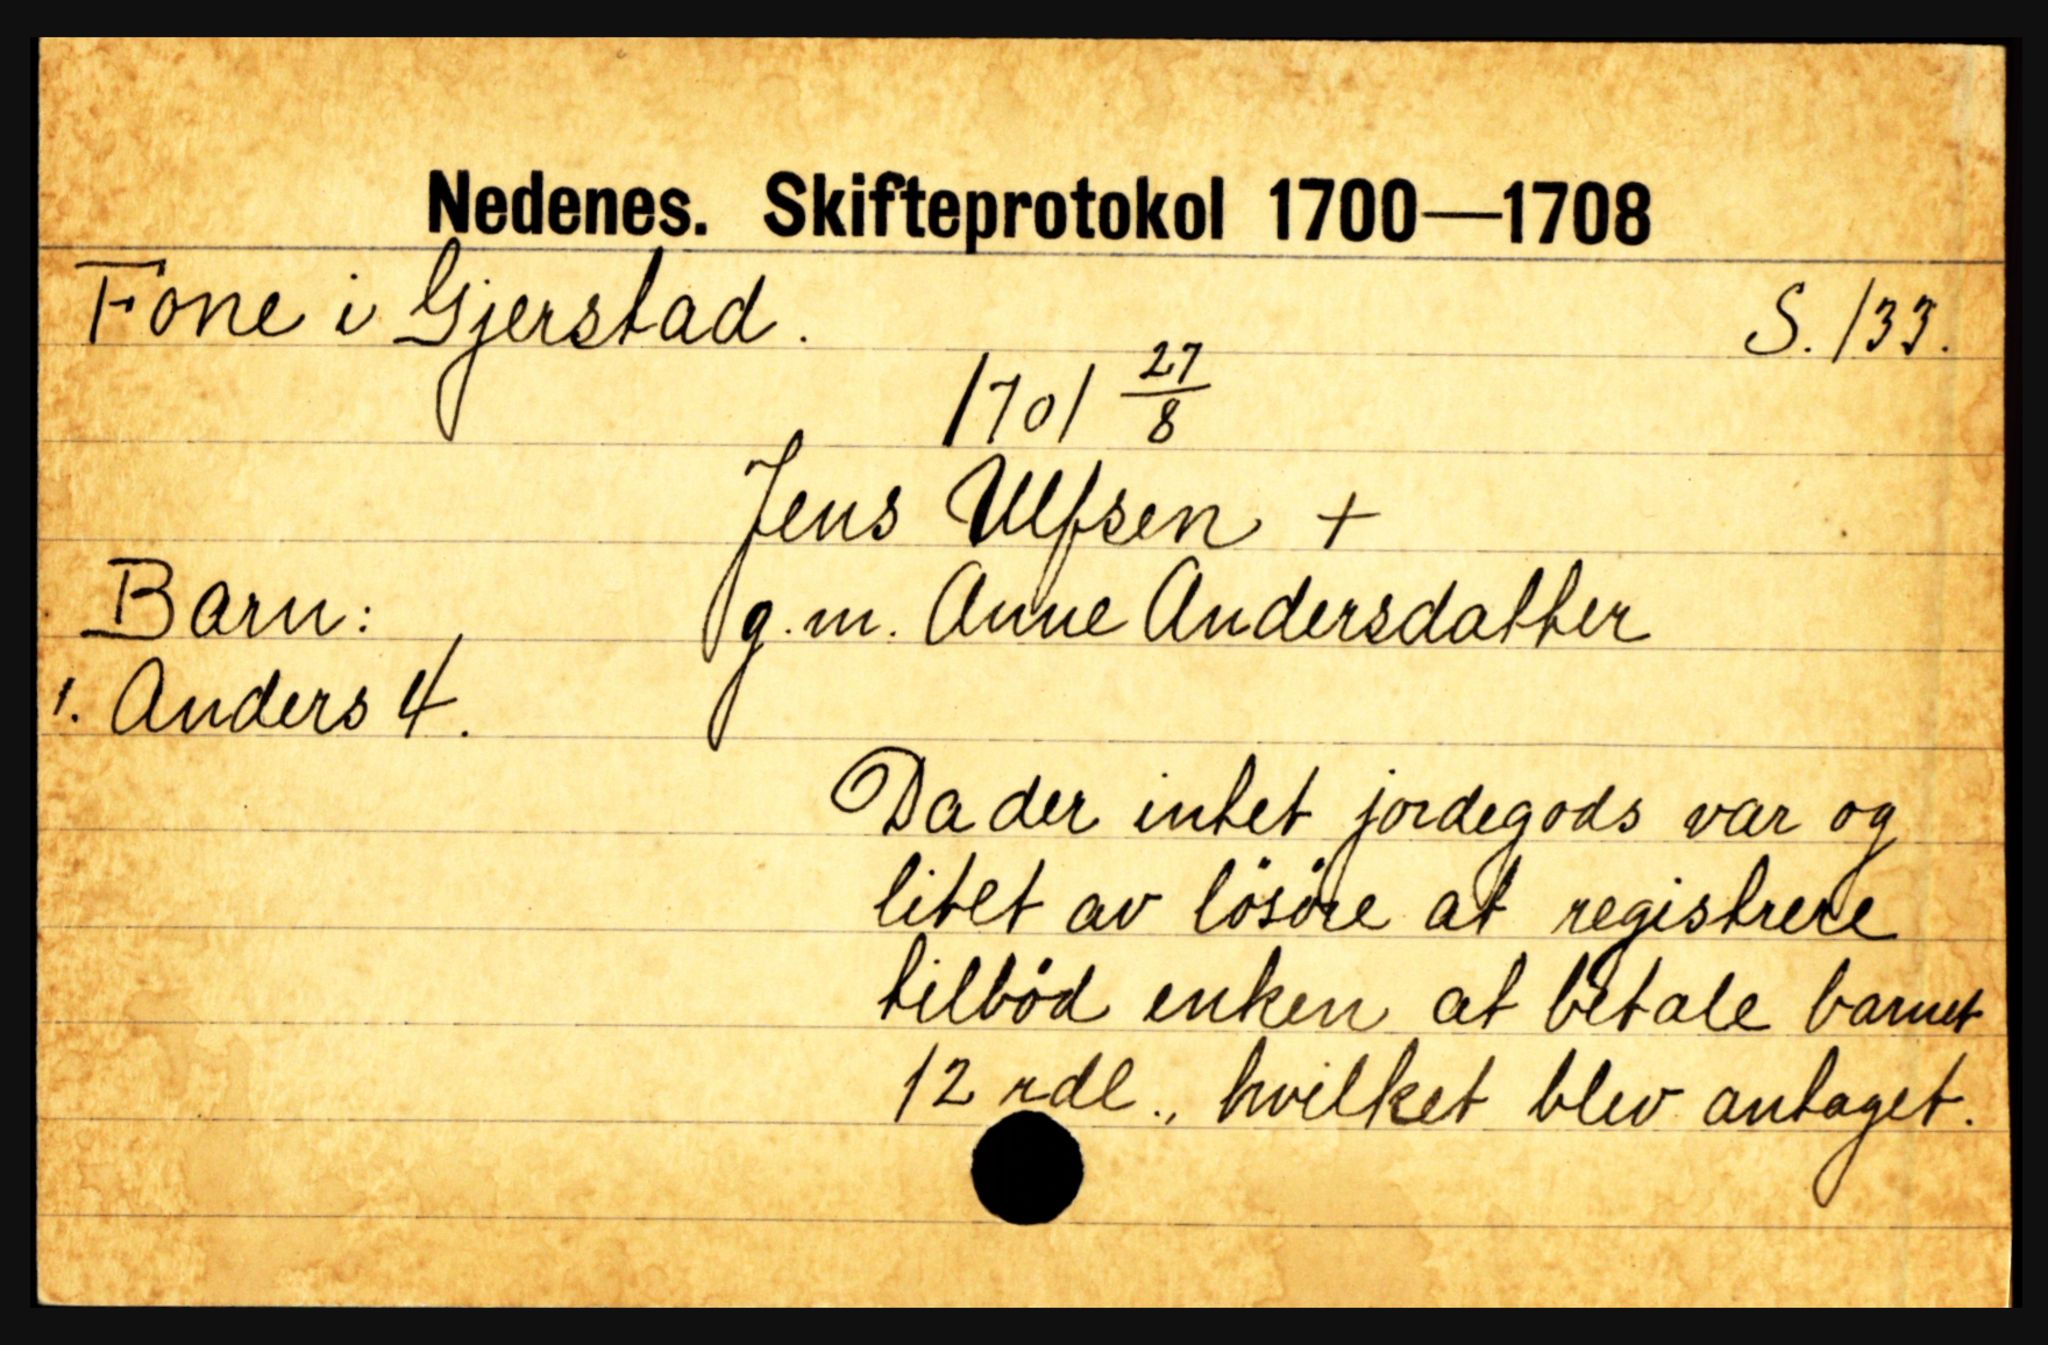 Nedenes. Skifteprotokol 1700—1708
Fone i Gjerstad. S. 133.
1701 27/8
Jens Ulfsen +
Barn: g. m. Anne Andersdatter
1. Anders 4.
Da der intet jordegods var og
litet av lösöre at registrere
tilböd enken at betale barnet
12 rdl., hvilket blev antaget.